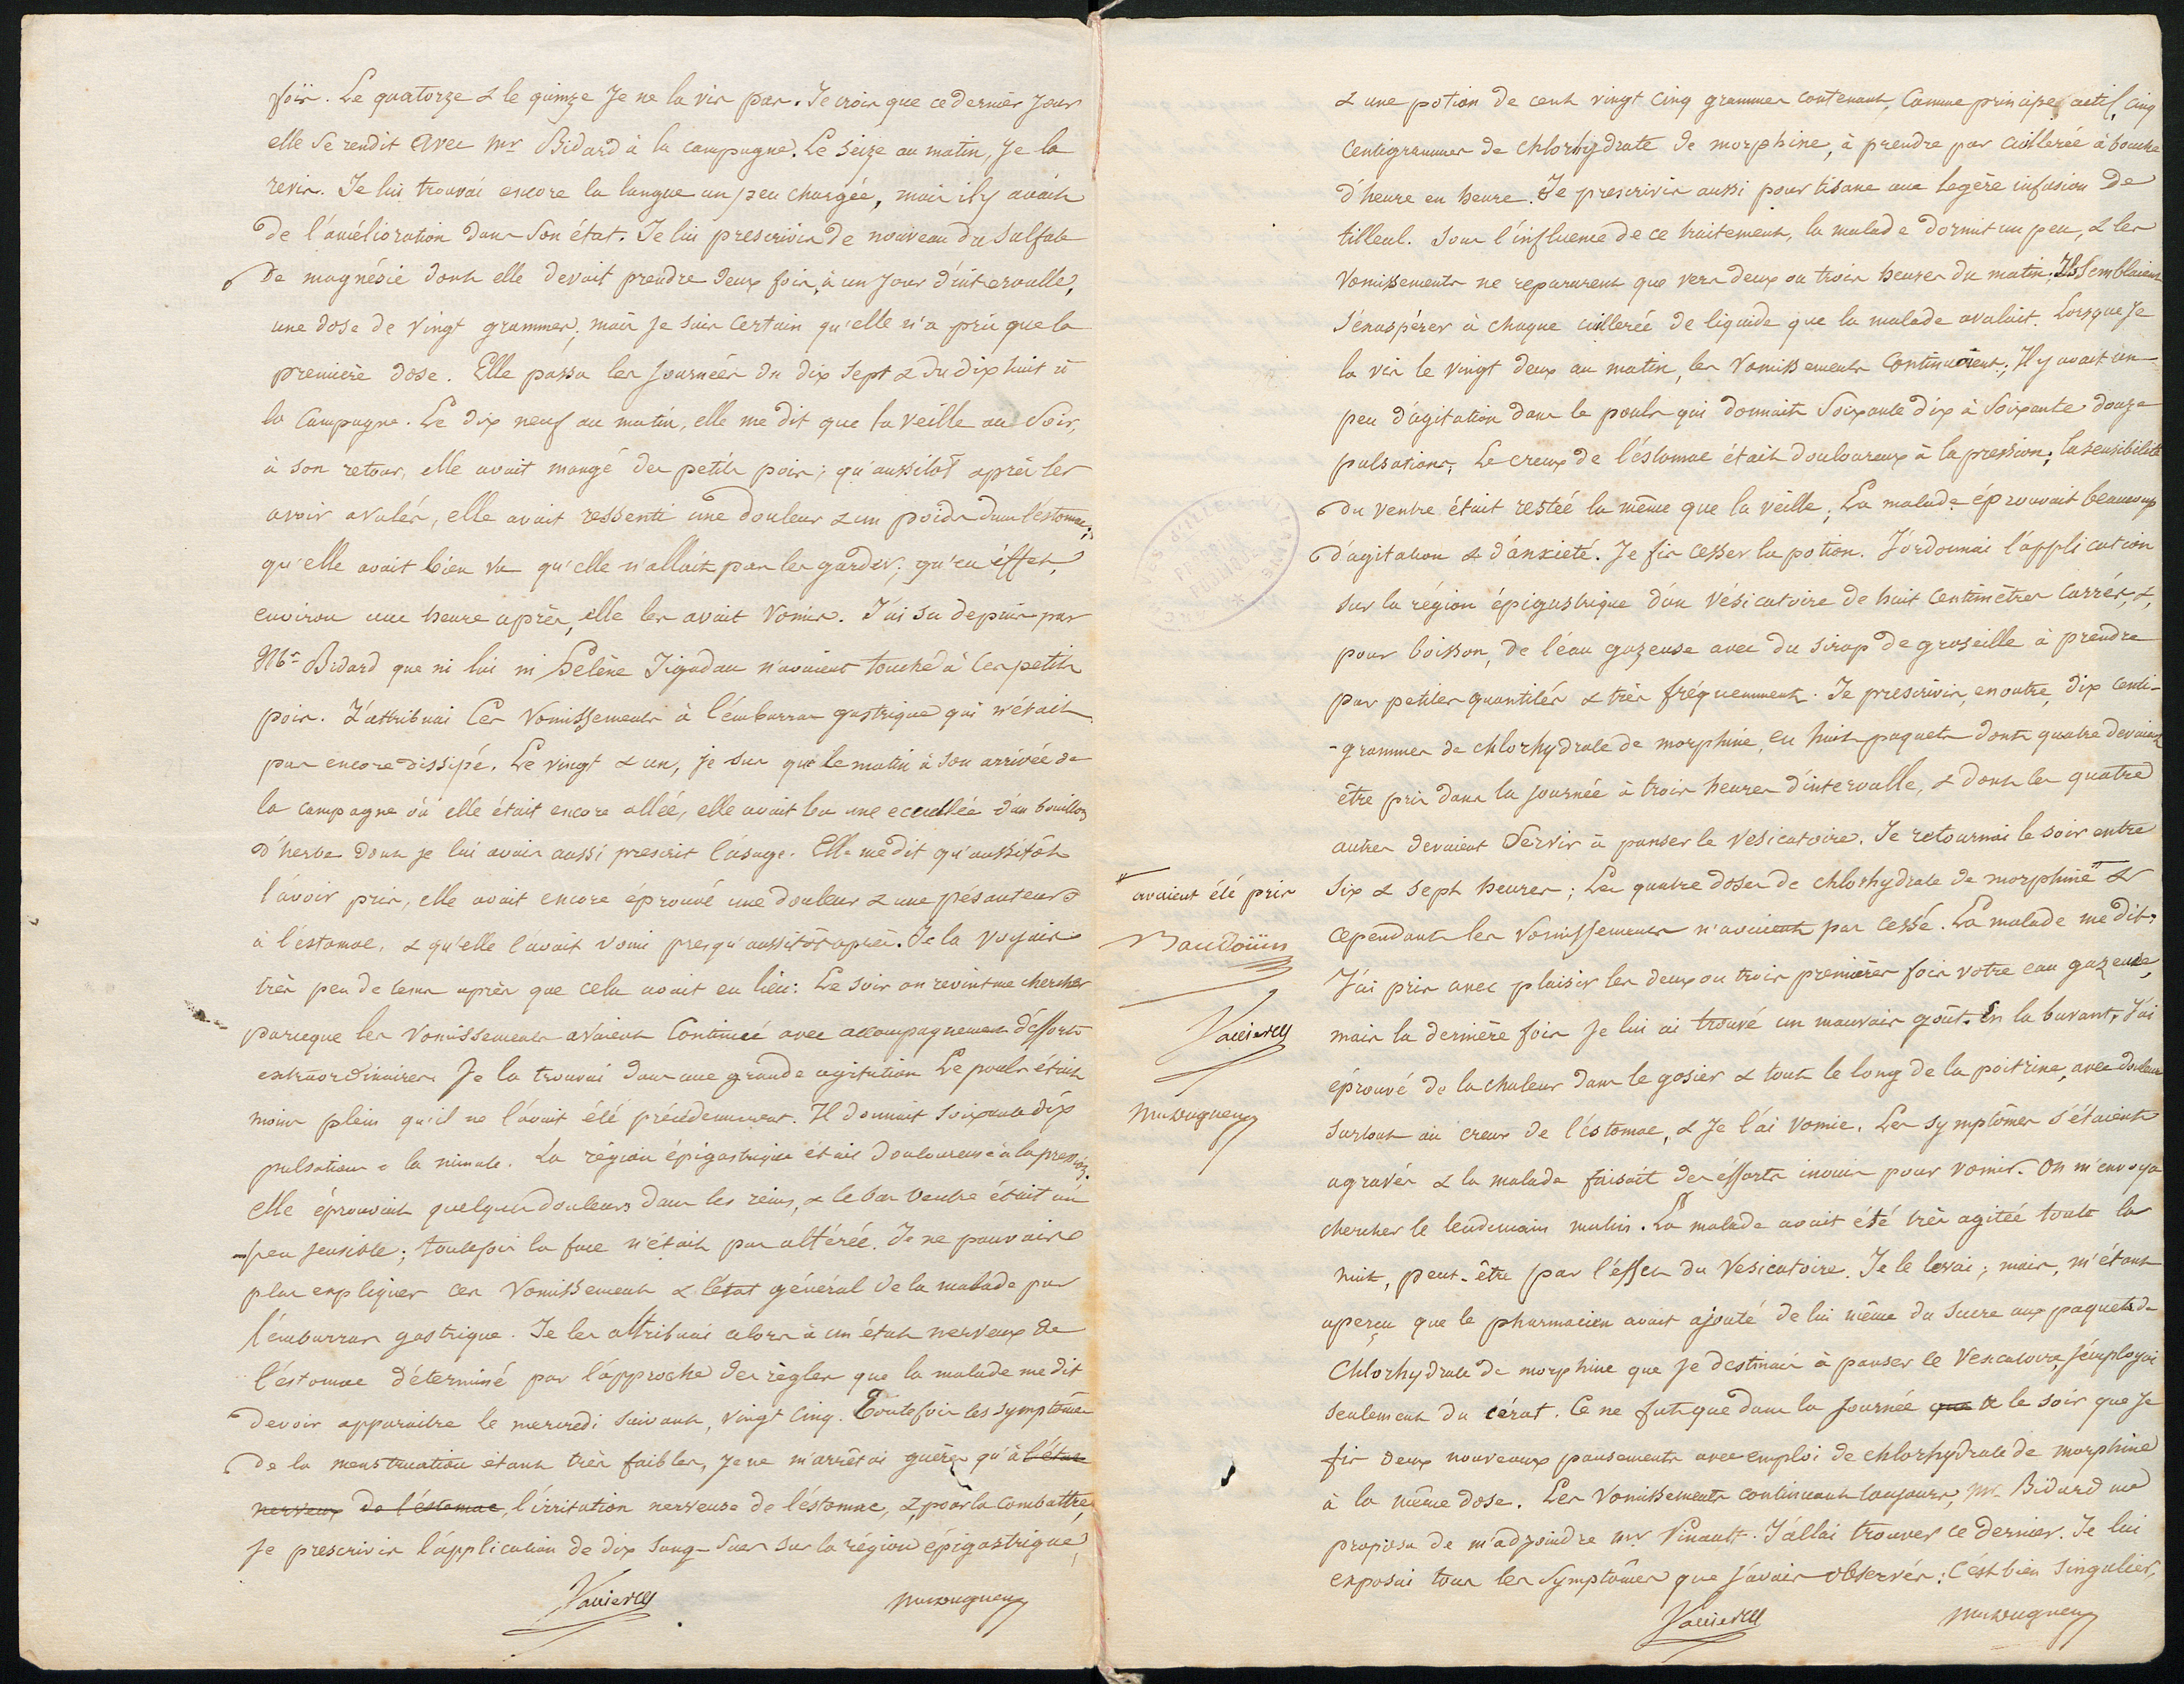 fois. Le quatorze & le quinze Je ne la vis pas. Je crois que ce dernier Jour
elle Se rendit avec Mr Bidard à la campagne. Le Seize au matin, Je la
revis. Je lui trouvai encore la langue un peu chargée, mais il y avait
de l'amélioration dans Son état. Je lui prescrivis de nouveau du Sulfate
de magnésie dont elle devait prendre deux fois, à un Jour d'intervalle,
une dose de vingt grammes; mais Je suis Certain qu'elle n'a pris que la
première dose. Elle passa les Journées du dix Sept & du dix huit à
la Campagne. Le dix neuf au matin, elle me dit que la veille au Soir,
à son retour, elle avait mangé des petits pois; qu'aussitôt après les
avoir avalés, elle avait ressenti une douleur & un poids dans l'éstomac;
qu'elle avait bien vu qu'elle n'allait pas les garder; qu'en éffet,
environ une heure après, elle les avait vomis. J'ai su depuis par
Mr Bidard que ni lui ni hélène Jigadau n'avaient touché à Ces petits
pois. J'attribuai Ces Vomissements à l'émbarras gastrique qui n'était
pas encore dissipé. Le vingt & un, je sus que le matin à son arrivée de
la campagne où elle était encore allée, elle avait bu une ecuellée d'un bouillon
d'herbes dont je lui avais aussi prescrit l'usage. Elle me dit qu'aussitôt
l'avoir pris, elle avait encore éprouvé une douleur & une pésanteur
à l'estomac, & qu'elle l'avait vomi presqu'aussitôt après. Je la voyais
très peu de tems après que cela avait eu lieu: Le Soir on revint me chercher
parceque les Vomissements avaient Continué avec accompagnement d'éfforts
extraordinaires. Je la trouvai dans une grande agitation Le pouls était
moins plein qu'il ne l'avait été précédemment. Il donnait soixante dix
pulsations à la minute. La région épigastrique était douloureuse à la pression.
elle éprouvait quelques douleurs dans les reins, & le bas ventre était un
peu sensible; toutefois la face n'était pas altérée. Je ne pouvais
plus expliquer ces Vomissements & l'état général de la malade par
l'émbarras gastrique. Je les attribuai alors à un état nerveux de
l'éstomac déterminé par l'approche des règles que la malade me dit
devoir apparaitre le mercredi suivant, vingt Cinq. Toutefois les symptômes
de la menstruation étant très faibles, Je ne m'arrêtai guère qu'à l'état
nerveux de l'éstomac, l'irritation nerveuse de l'éstomac, &, pour la combattre,
Je prescrivis l'application de dix Sang-Sues sur la région épigastrique,
& une potion de cent vingt cinq grammes contenant, Comme principe actif, cinq
Centigrammes de chlorhydrate de morphine, à prendre par cuillerée à bouche
d'heure en heure. Je prescrivis aussi pour tisane une legère infusion de
tilleul. Sous l'influence de ce traitement, la malade dormit un peu, & les
Vomissements ne reparurent que vers deux ou trois heures du matin. Ils Semblaient
S'éxaspérer à chaque cuillerée de liquide que la malade avalait. Lorsque Je
la vis le vingt deux au matin, les Vomissements Continuaient; Il y avait un
peu d'agitation dans le pouls qui donnait Soixante dix à Soixante douze
pulsations; Le creux de l'éstomac était douloureux à la pression; la sensibilité
du ventre était restée la même que la veille; La malade éprouvait beaucoup
d'agitation & d'anxieté. Je fis cesser la potion. J'ordonnai l'application
sur la région épigastrique d'un vésicatoire de huit centimètres carrés, &,
pour boisson, de l'éau gazeuse avec du sirop de groseille à prendre
par petites quantités & très fréquemment. Je prescrivis, en outre, dix centi-
-grammes de chlorhydrate de morphine, en huit paquets dont quatre devaient
être pris dans la journée à trois heures d'intervalle, & dont les quatre
autres devaient Servir à panser le vesicatoire. Je retournai le soir entre
Six & Sept heures; Les quatre doses de chlorhydrate de morphine &
avaient été pris
Baudoüin
cependant les Vomissements n'avaient pas cessé. La malade me dit:
J'ai pris avec plaisir les deux ou trois premières fois votre eau gazeuse,
mais la dernière fois je lui ai trouvé un mauvais goût. En la buvant, J'ai
éprouvé de la chaleur dans le gosier & tout le long de la poitrine, avec douleur
surtout au creux de l'éstomac, & Je l'ai vomie. Les symptômes s'étaient
agravés & la malade faisait des éfforts inouis pour vomir. On m'envoya
chercher le lendemain matin. La malade avait été très agitée toute la
nuit, peut-être par l'éffet du Vesicatoire. Je le levai; mais, m'étant
aperçu que le pharmacien avait ajouté de lui même du Sucre aux paquets de
Chlorhydrate de morphine que Je destinais à panser le Vesicatoire, J'employai
seulement du cérat. Ce ne fut que dans la Journée que & le soir que Je
fis deux nouveaux pansements avec emploi de chlorhydrate de morphine
à la même dose. Les Vomissements continuant toujours, Mr Bidard me
proposa de m'adjoindre Mr Pinault. J'allai trouver ce dernier. Je lui
exposai tous les Symptômes que J'avais observés: C'ést bien singulier,